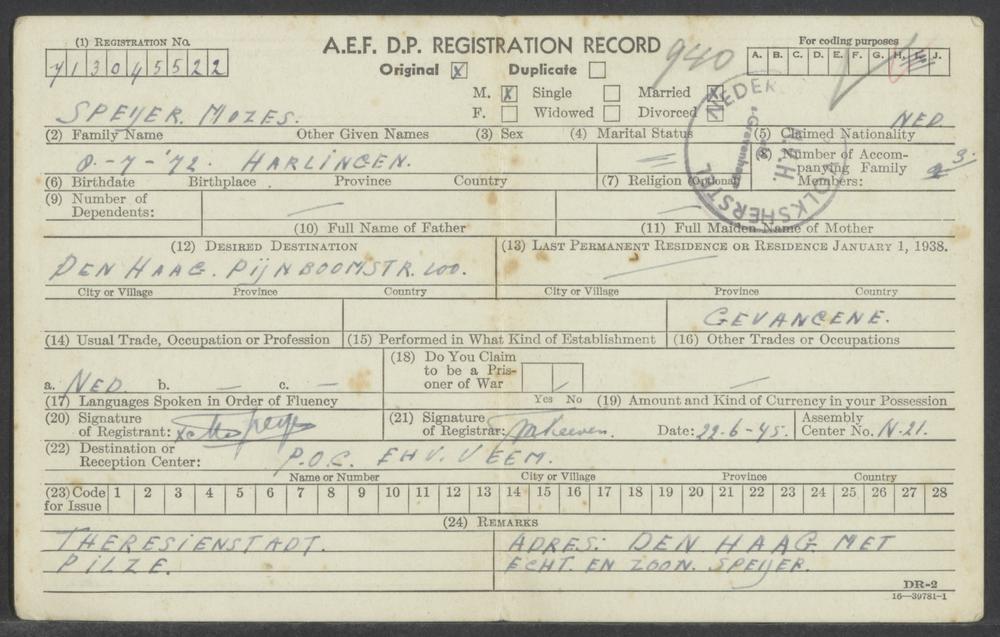 (1) REGISTRATION No.
A.E.F. D.P. REGISTRATION RECORD
940
For coding purposes
A. B. C. D. E. F. G. H. I. J.
Original X Duplicate
M. X Single Married X
F. Widowed Divorced
SPEYER. MOZES. NED.
(2) Family Name Other Given Names (3) Sex (4) Marital Status (5) Claimed Nationality
HARLINGEN.
(8) Number of Accompanying Family Members: 3.
(6) Birthdate Birthplace Province Country (7) Religion (Optional)
(9) Number of Dependents:
(10) Full Name of Father (11) Full Maiden Name of Mother
(12) DESIRED DESTINATION (13) LAST PERMANENT RESIDENCE OR RESIDENCE JANUARY 1, 1938.
DEN HAAG. PIJNBOOMSTR. 100.
City or Village Province Country City or Village Province Country
GEVANGENE.
(14) Usual Trade, Occupation or Profession (15) Performed in What Kind of Establishment (16) Other Trades or Occupations
(18) Do You Claim to be a Prisoner of War
a. NED. b. — c. —
Yes No
(17) Languages Spoken in Order of Fluency (19) Amount and Kind of Currency in your Possession
(20) Signature of Registrant: x Speyer
(21) Signature of Registrar:
Date: 22-6-45.
Assembly Center No. N-21.
(22) Destination or Reception Center: P.O.C. EHV. VEEM.
Name or Number City or Village Province Country
(23) Code for Issue 1 2 3 4 5 6 7 8 9 10 11 12 13 14 15 16 17 18 19 20 21 22 23 24 25 26 27 28
(24) REMARKS
THERESIENSTADT. ADRES: DEN HAAG MET
PILZE. ECHT. EN ZOON. SPEYER.
DR-2
16—39781-1